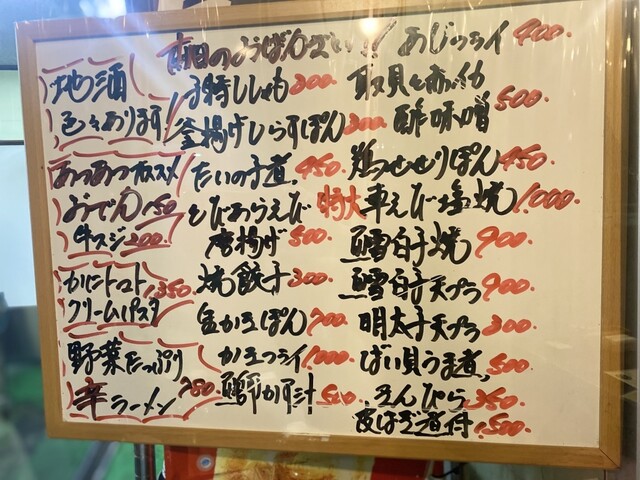 本日のおばんざい!!
地酒
色々あります!
あつあつオススメ
おでん 150
牛スジ 200.
かにトマト
クリームパスタ 1,350.
野菜たっぷり
辛ラーメン 750
子持ししゃも 300
釜揚げしらすぽん 300
たいの子煮 450
とびあらえび
唐揚げ 500.
焼餃子 300
生かきぽん 700
かきフライ 1,000
鰤かす汁 500
あじフライ 400
取貝と赤イカ
酢味噌 500
鶏せせりぽん 450
特大 車えび塩焼 1,000
鱈白子焼 900
鱈白子天プラ 900
明太子天プラ 300
ばい貝うま煮 500
きんぴら 350
皮はぎ煮付 1,500